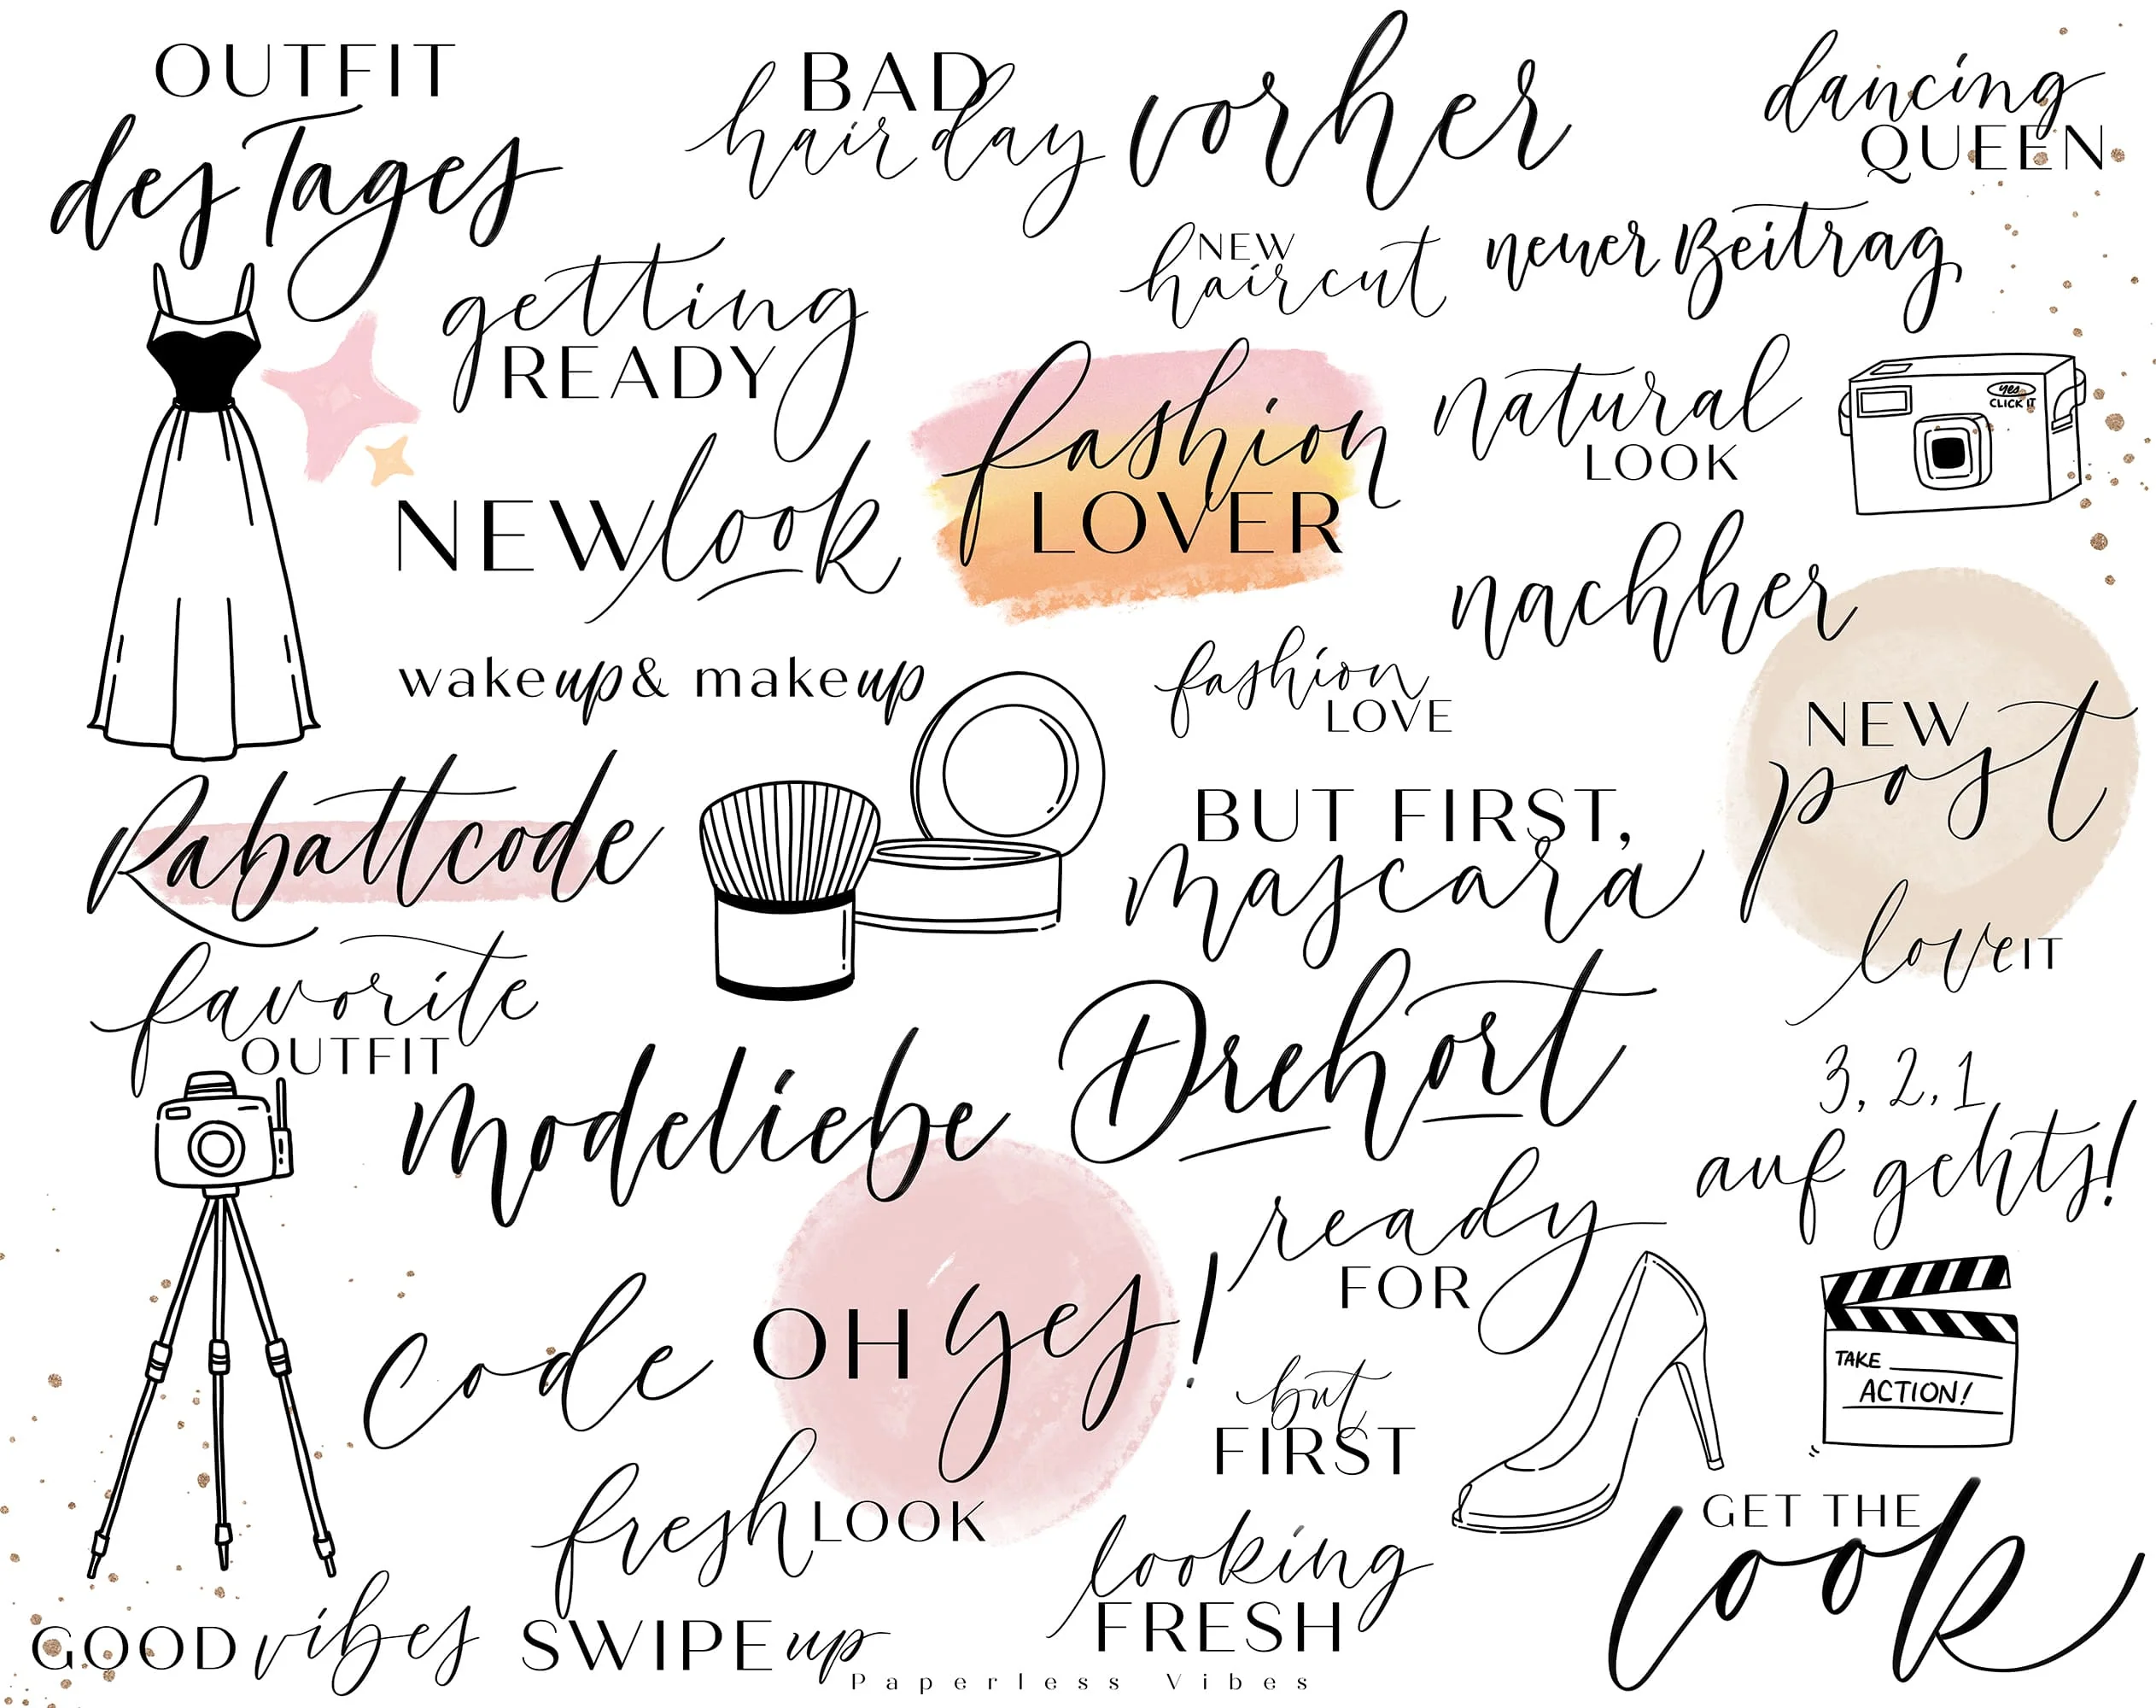 OUTFIT
des Tages
BAD
hair day
vorher
dancing
QUEEN
NEW
haircut
neuer Beitrag
getting
READY
fashion
LOVER
natural
LOOK
yes
CLICK IT
NEW look
nachher
wake up & make up
fashion
LOVE
NEW
post
Rabattcode
BUT FIRST,
mascara
love IT
favorite
OUTFIT
Modeliebe
Drehort
3, 2, 1
auf gehts!
ready
FOR
code
OH yes!
but
FIRST
TAKE
ACTION!
fresh LOOK
looking
FRESH
GET THE
look
GOOD vibes
SWIPE up
Paperless Vibes